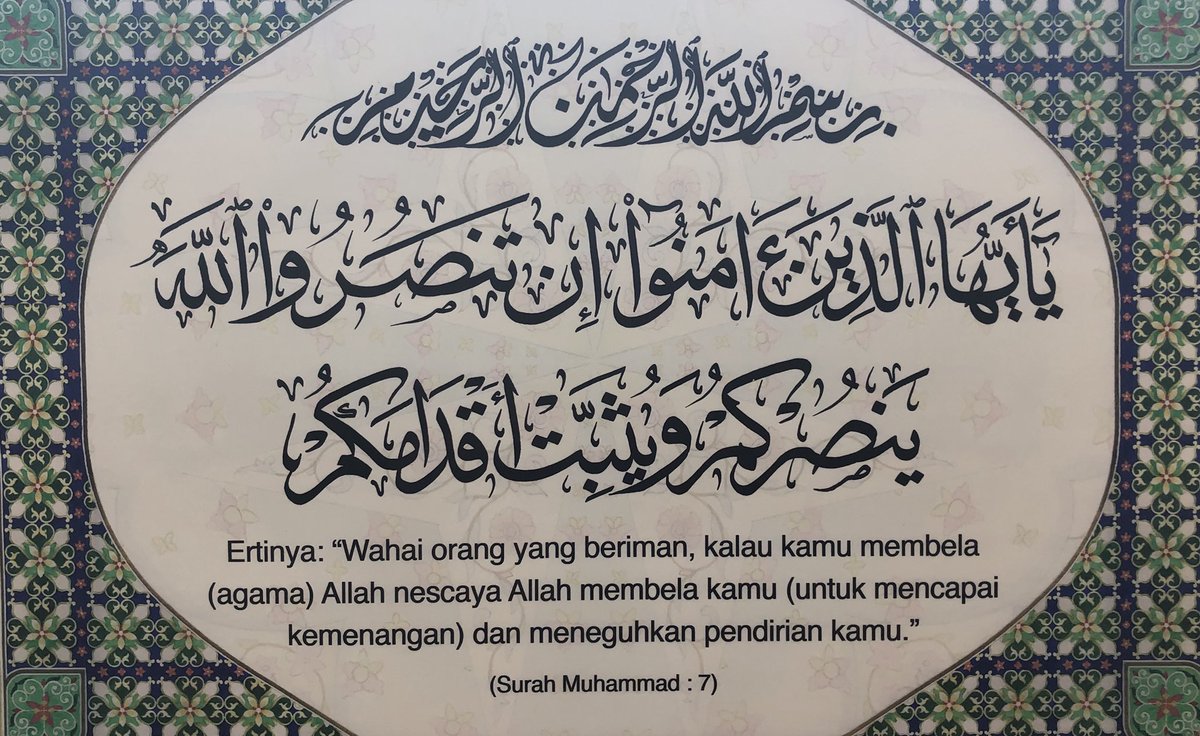 بِسْمِ اللَّهِ الرَّحْمَنِ الرَّحِيمِ
يَٰٓأَيُّهَا ٱلَّذِينَ ءَامَنُوٓا۟ إِن تَنصُرُوا۟ ٱللَّهَ
يَنصُرْكُمْ وَيُثَبِّتْ أَقْدَامَكُمْ
Ertinya: “Wahai orang yang beriman, kalau kamu membela
(agama) Allah nescaya Allah membela kamu (untuk mencapai
kemenangan) dan meneguhkan pendirian kamu.”
(Surah Muhammad : 7)